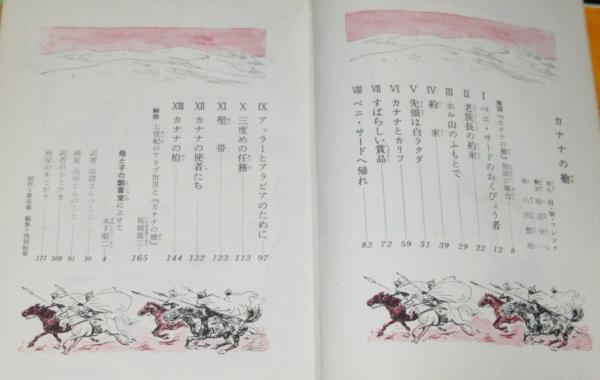 カナナの槍
H・W・フレンチ
地図『カナナの槍』物語の舞台 8
I ベニ・サードのおくびょう者 12
II 老族長の約束 22
III ホル山のふもとで 29
IV 約束 39
V 先頭は白ラクダ 51
VI カナナとカリフ 59
VII すばらしい賞品 72
VIII ベニ・サードへ帰れ 83
IX アッラーとアラビアのために 97
X 三度めの任務 113
XI 聖帯 123
XII カナナの使者たち 132
XIII カナナの槍 144
解説 七世紀のアラブ世界と『カナナの槍』 板垣雄三 165
母と子の図書室によせて 木下順二 4
訳者 田辺さんのこと 10
画家 山川さんのこと 10
訳者のあとがき 169
画家のあとがき 171